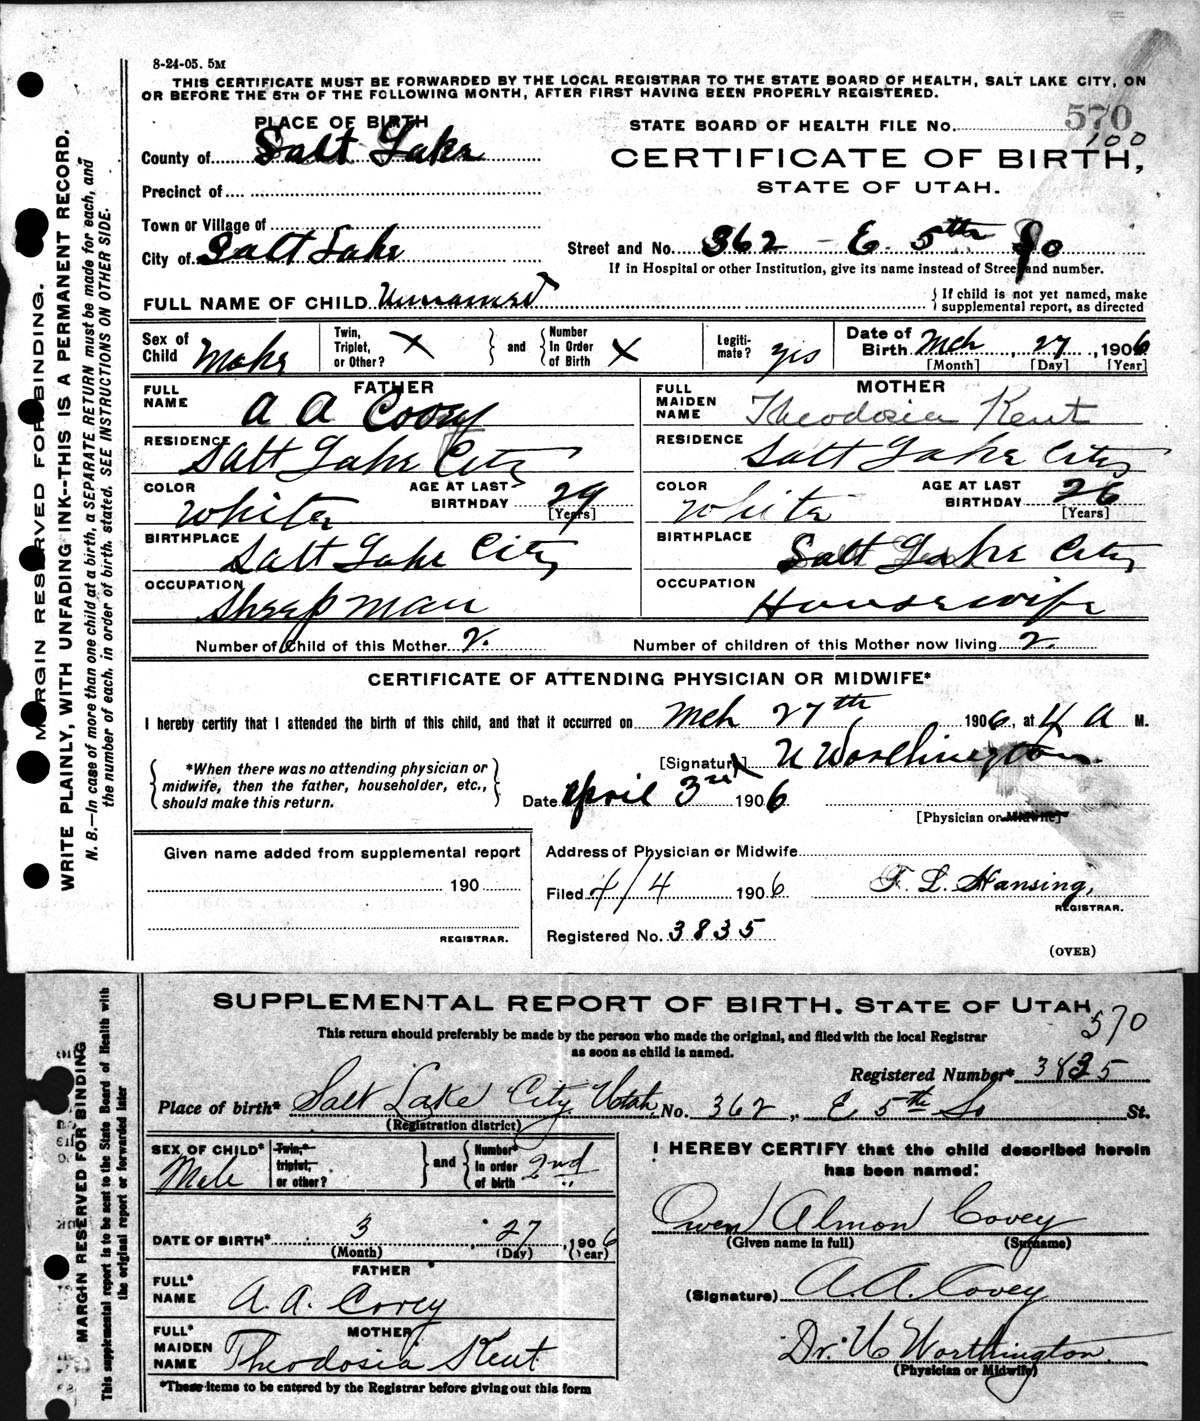 8-24-05. 5M
THIS CERTIFICATE MUST BE FORWARDED BY THE LOCAL REGISTRAR TO THE STATE BOARD OF HEALTH, SALT LAKE CITY, ON
OR BEFORE THE 5TH OF THE FOLLOWING MONTH, AFTER FIRST HAVING BEEN PROPERLY REGISTERED.
MARGIN RESERVED FOR BINDING.
WRITE PLAINLY, WITH UNFADING INK--THIS IS A PERMANENT RECORD.
N. B.—In case of more than one child at a birth, a SEPARATE RETURN must be made for each, and
the number of each, in order of birth, stated. SEE INSTRUCTIONS ON OTHER SIDE.
PLACE OF BIRTH
STATE BOARD OF HEALTH FILE No. 570
100
County of Salt Lake
CERTIFICATE OF BIRTH,
Precinct of
STATE OF UTAH.
Town or Village of
City of Salt Lake
Street and No. 362 - E 5th So
If in Hospital or other Institution, give its name instead of Street and number.
FULL NAME OF CHILD Unnamed
{ If child is not yet named, make
supplemental report, as directed
Sex of Child Male
Twin, Triplet, or Other? X
and
Number In Order of Birth X
Legiti-mate? yes
Date of Birth Mch, 27, 1906
[Month] [Day] [Year]
FATHER
FULL NAME A A Covey
MOTHER
FULL MAIDEN NAME Theodosia Kent
RESIDENCE Salt Lake City
RESIDENCE Salt Lake City
COLOR White
AGE AT LAST BIRTHDAY 29
[Years]
COLOR White
AGE AT LAST BIRTHDAY 26
[Years]
BIRTHPLACE Salt Lake City
BIRTHPLACE Salt Lake City
OCCUPATION Sheep man
OCCUPATION Housewife
Number of Child of this Mother 2.
Number of children of this Mother now living 2.
CERTIFICATE OF ATTENDING PHYSICIAN OR MIDWIFE*
I hereby certify that I attended the birth of this child, and that it occurred on Mch 27th 1906, at 4 A M.
*When there was no attending physician or
midwife, then the father, householder, etc.,
should make this return.
[Signature] U Worthington
Date April 3rd 1906
[Physician or Midwife]
Given name added from supplemental report
190
REGISTRAR.
Address of Physician or Midwife
Filed 4/4 1906
F. L. Hansing,
REGISTRAR.
Registered No. 3835
(OVER)
MARGIN RESERVED FOR BINDING
This supplemental report is to be sent to the State Board of Health with
the original report or forwarded later
SUPPLEMENTAL REPORT OF BIRTH. STATE OF UTAH
570
This return should preferably be made by the person who made the original, and filed with the local Registrar
as soon as child is named.
Registered Number* 3835
Place of birth* Salt Lake City Utah, No. 362, E 5th So St.
(Registration district)
SEX OF CHILD* Male
Twin,* triplet, or other?
and
Number* in order of birth 2nd
I HEREBY CERTIFY that the child described herein
has been named:
DATE OF BIRTH* 3, 27, 1906
(Month) (Day) (Year)
Owen Almon Covey
(Given name in full) (Surname)
FATHER
FULL* NAME A. A. Covey
(Signature) A. A. Covey
MOTHER
FULL* MAIDEN NAME Theodosia Kent
Dr. U Worthington
(Physician or Midwife)
*These items to be entered by the Registrar before giving out this form